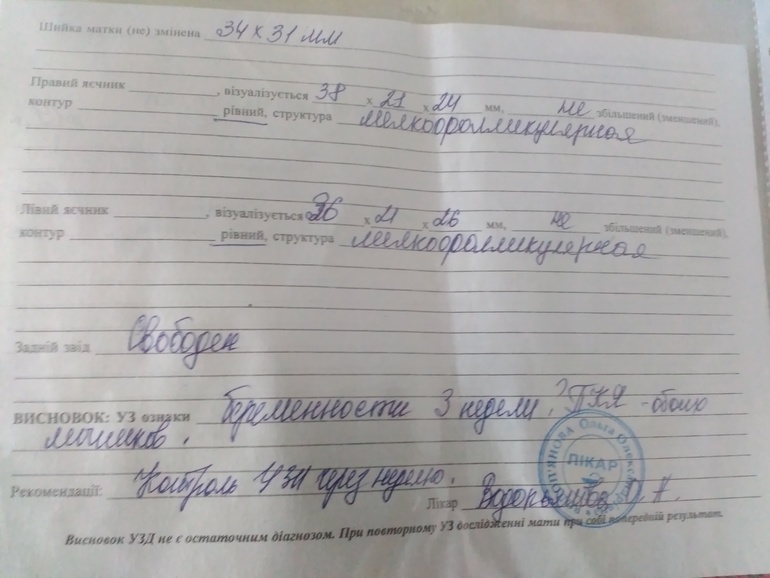 Шийка матки (не) змінена 34 х 31 мм
Правий яєчник ____________, візуалізується 38 х 21 х 24 мм, не збільшений (зменшений),
контур ____________ рівний, структура мелкофолликулярная
Лівий яєчник ____________, візуалізується 36 х 21 х 26 мм, не збільшений (зменшений),
контур ____________ рівний, структура мелкофолликулярная
Задній звід Свободен
ВИСНОВОК: УЗ ознаки беременности 3 недели. ? ПКЯ - обоих
Рекомендації: Контроль УЗИ через неделю.
Лікар Водопьянова О. А.
ЛІКАР
Ольга
Висновок УЗД не є остаточним діагнозом. При повторному УЗ дослідженні мати при собі попередній результат.